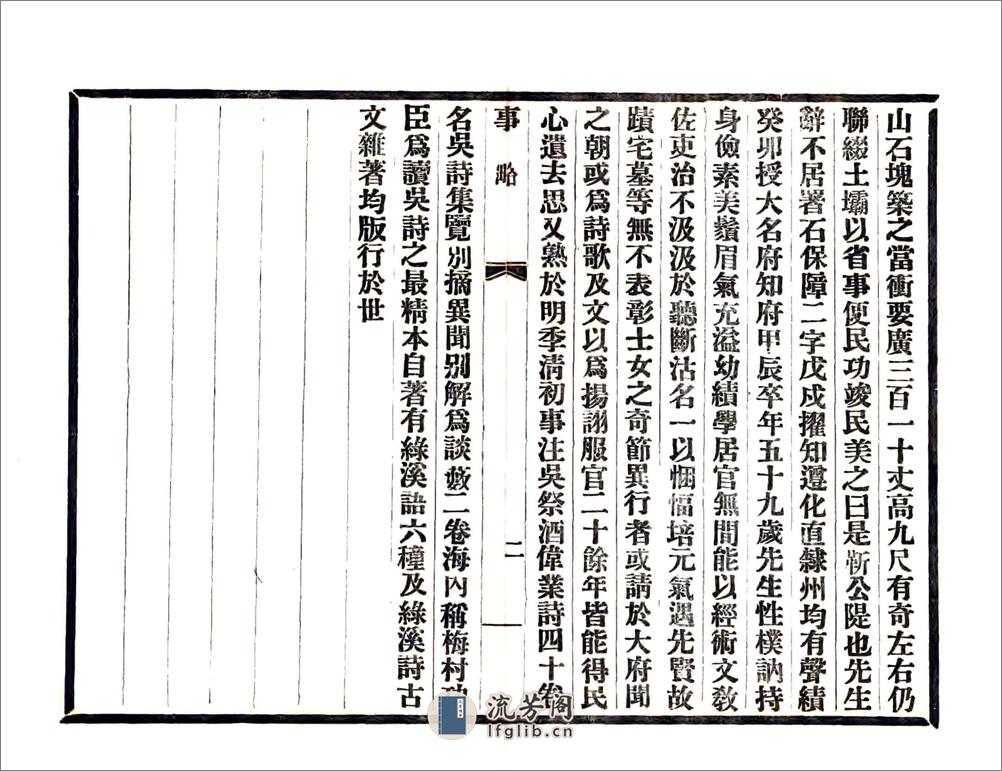 山石塊築之當衝要廣三百一十丈高九尺有奇左右仍
聯綴土壩以省事便民功竣民美之曰是靳公隄也先生
辭不居署石保障二字戊戌擢知遵化直隸州均有聲績
癸卯授大名府知府甲辰卒年五十九歲先生性樸訥持
身儉素美鬚眉氣充溢幼績學居官無間能以經術文敎
佐吏治不汲汲於聽斷沽名一以悃愊培元氣遇先賢故
蹟宅墓等無不表彰士女之奇節異行者或請於大府聞
之朝或爲詩歌及文以爲揚詡服官二十餘年皆能得民
心遺去思又熟於明季淸初事注吳祭酒偉業詩四十卷
事略
二
名吳詩集覽別摘異聞别解爲談藪二卷海內稱梅村功
臣爲讀吳詩之最精本自著有綠溪語六種及綠溪詩古
文雜著均版行於世
流芳阁
lfglib.cn